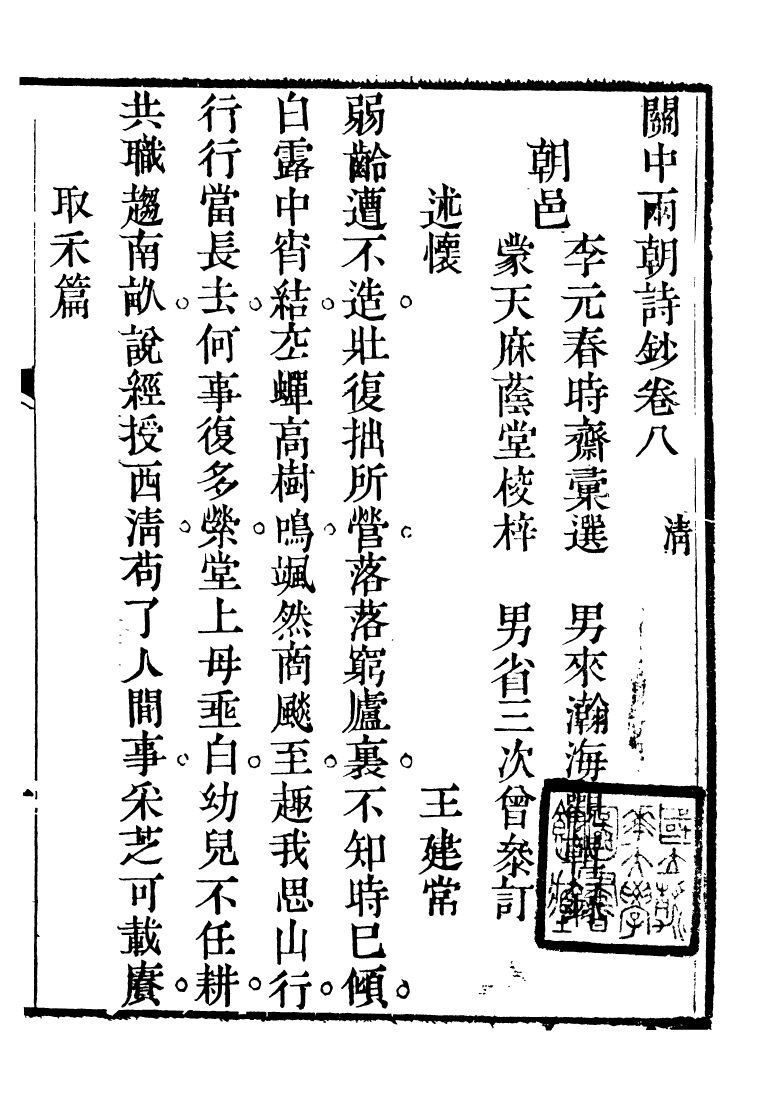 關中兩朝詩鈔卷八 清
朝邑
李元春時齋彙選 男來瀚海觀
蒙天庥蔭堂校梓 男省三次曾參訂
述懷 王建常
弱齡遭不造壯復拙所營落落窮廬裏不知時已傾
白露中宵結㘴蟬高樹鳴颯然商飈至趣我思山行
行行當長去何事復多縈堂上母垂白幼兒不任耕
共職趨南畝說經授西清苟了人間事采芝可載賡
取禾篇